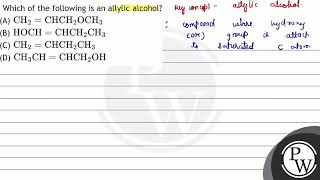 Which of the following is an allylic alcohol?
(A) CH₂ = CHCH₂OCH₃
(B) HOCH = CHCH₂CH₃
(C) CH₂ = CHCH₂CH₃
(D) CH₃CH = CHCH₂OH
Key concept - allylic alcohol
: compound where hydroxy
(OH) group is attach
to saturated C atom
PW